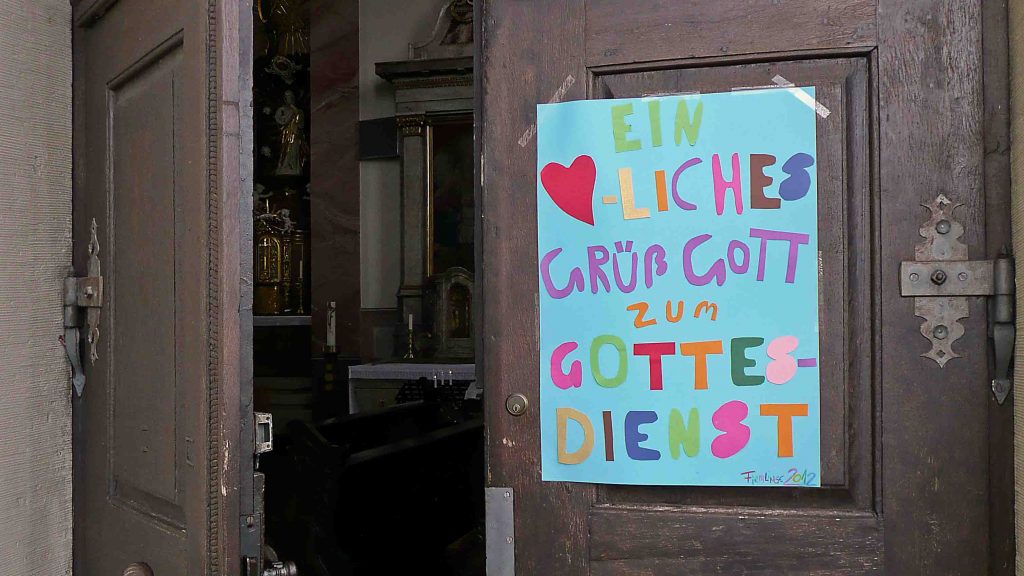 EIN
❤-LICHES
GRÜß GOTT
ZUM
GOTTES-
DIENST
2012